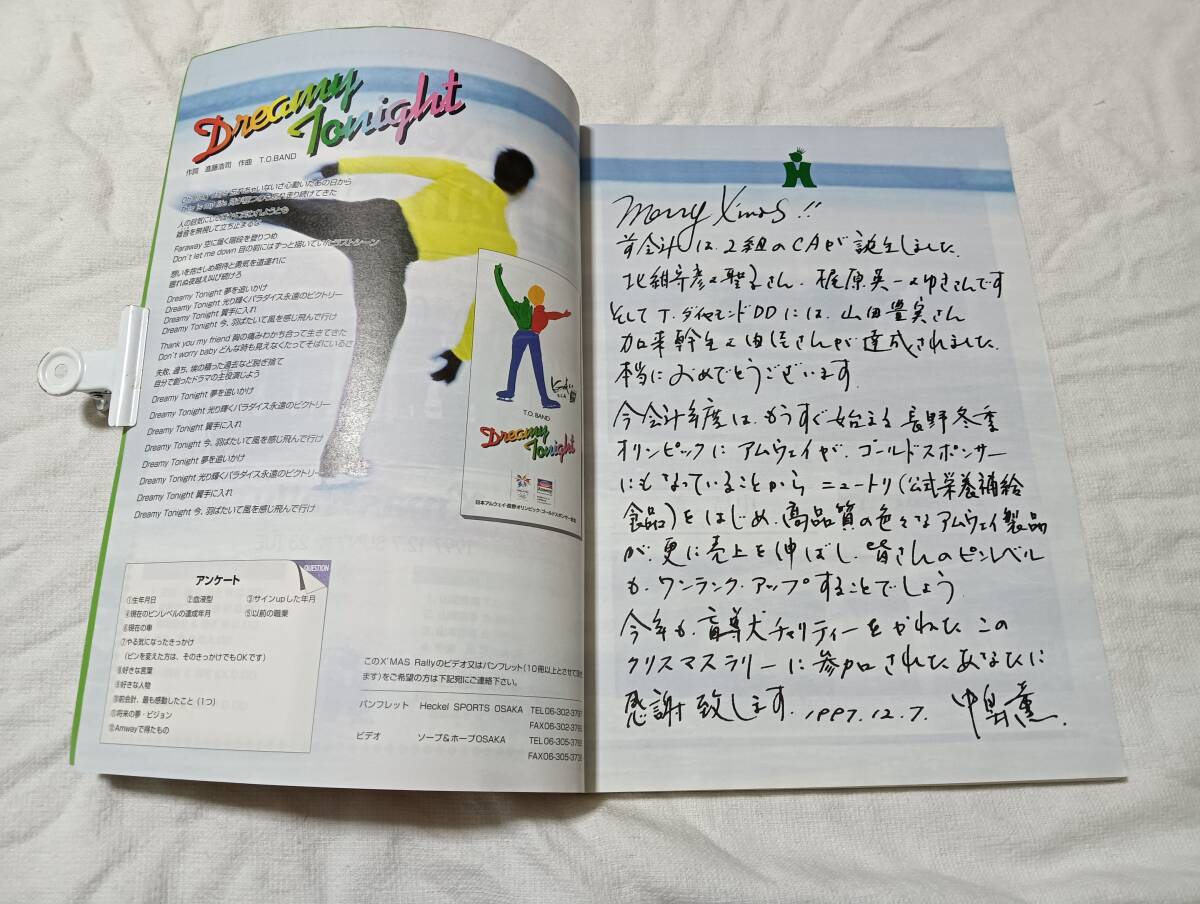 Dreamy
Tonight
作詞 進藤浩司 作曲 T.O.BAND
心動いたあの日から
続けてきた
人の目気にして
雑音を無視して立ち止まるな
Faraway 空に届く階段を登りつめ
Don't let me down 目の前にはずっと描いていたラストシーン
想いを抱きしめ期待と勇気を道連れに
眠れぬ夜越え叫び続けろ
Dreamy Tonight 夢を追いかけ
Dreamy Tonight 光り輝くパラダイス永遠のビクトリー
Dreamy Tonight 翼手に入れ
Dreamy Tonight 今、羽ばたいて風を感じ飛んで行け
Thank you my friend 胸の痛みわかち合って生きてきた
Don't worry baby どんな時も見えなくたってそばにいるさ
失敗、過ち、埃の積った過去など脱ぎ捨て
自分で創ったドラマの主役演じよう
Dreamy Tonight 夢を追いかけ
Dreamy Tonight 光り輝くパラダイス永遠のビクトリー
Dreamy Tonight 翼手に入れ
Dreamy Tonight 今、羽ばたいて風を感じ飛んで行け
Dreamy Tonight 夢を追いかけ
Dreamy Tonight 光り輝くパラダイス永遠のビクトリー
Dreamy Tonight 翼手に入れ
Dreamy Tonight 今、羽ばたいて風を感じ飛んで行け
T.O.BAND
Dreamy
Tonight
日本アムウェイ・長野オリンピック・ゴールドスポンサー
QUESTION
アンケート
①生年月日 ②血液型 ③サインupした年月
④現在のピンレベルの達成年月 ⑤以前の職業
⑥現在の車
⑦やる気になったきっかけ
(ピンを変えた方は、そのきっかけでもOKです)
⑧好きな言葉
⑨好きな人物
⑩前会計、最も感動したこと(1つ)
⑪将来の夢・ビジョン
⑫Amwayで得たもの
このX'MAS Rallyのビデオ又はパンフレット(10冊以上とさせて頂き
ます)をご希望の方は下記宛にご連絡下さい。
パンフレット Heckel SPORTS OSAKA TEL06-302-3791
FAX06-302-379
ビデオ ソープ&ホープOSAKA TEL06-305-3765
FAX06-305-373
Merry X'mas!!
前会計は、2組のCAが誕生しました
北組守彦&聖子さん、梶原英一&ゆきさんです
そしてT.ダイヤモンドDDには、山田豊実さん
加来幹生&由佳さんが達成されました
本当におめでとうございます
今会計年度は、もうすぐ始まる長野冬季
オリンピックにアムウェイが、ゴールドスポンサー
にもなっていることからニュートリ(公式栄養補給
食品)をはじめ、高品質の色々なアムウェイ製品
が、更に売上を伸ばし、皆さんのピンレベル
も、ワンランク・アップすることでしょう
今年も、盲導犬チャリティーをかねたこの
クリスマスラリーに参加されたあなたに
感謝致します。1997.12.7. 中島薫